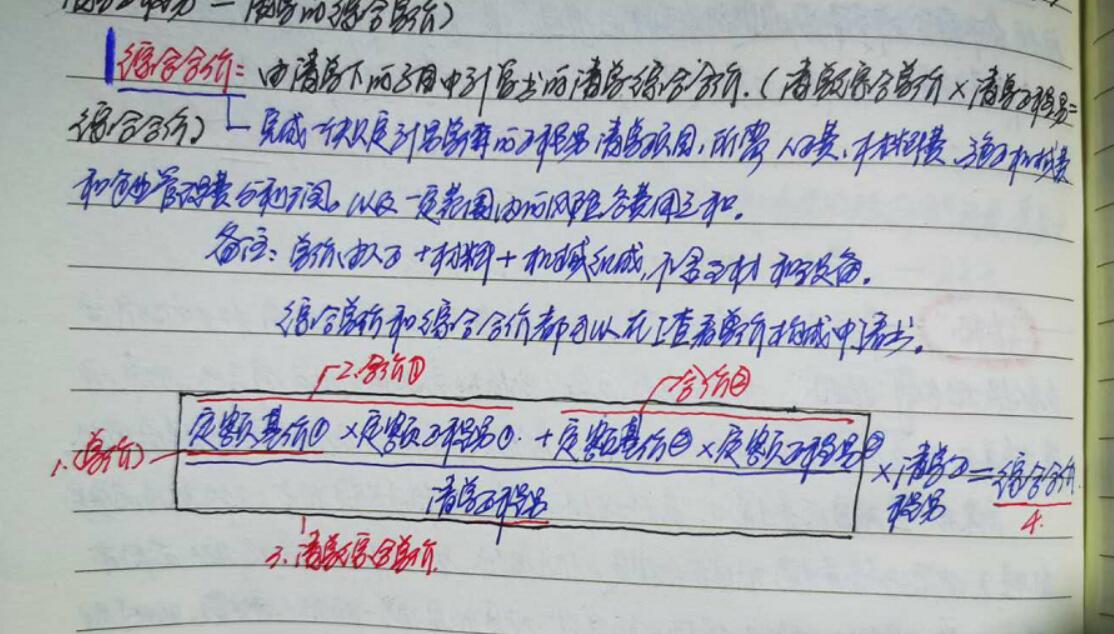 综合合价：由清单下的子目中计算出的清单综合合价.（清单综合单价×清单工程量=
综合合价） 完成一个规定计量单位的工程量清单项目,所需人工费、材料费、施工机械费
和企业管理费与利润,以及一定范围内的风险含费用之和。
备注：单价由人工+材料+机械组成,不含主材和设备。
综合单价和综合合价都可以在工查看单价构成中读出。
2.合价① 合价②
1.(单价) 定额基价①×定额工程量①.+定额基价②×定额工程量②
×清单工=综合合价.
清单工程量 程量 4.
3.清单综合单价.